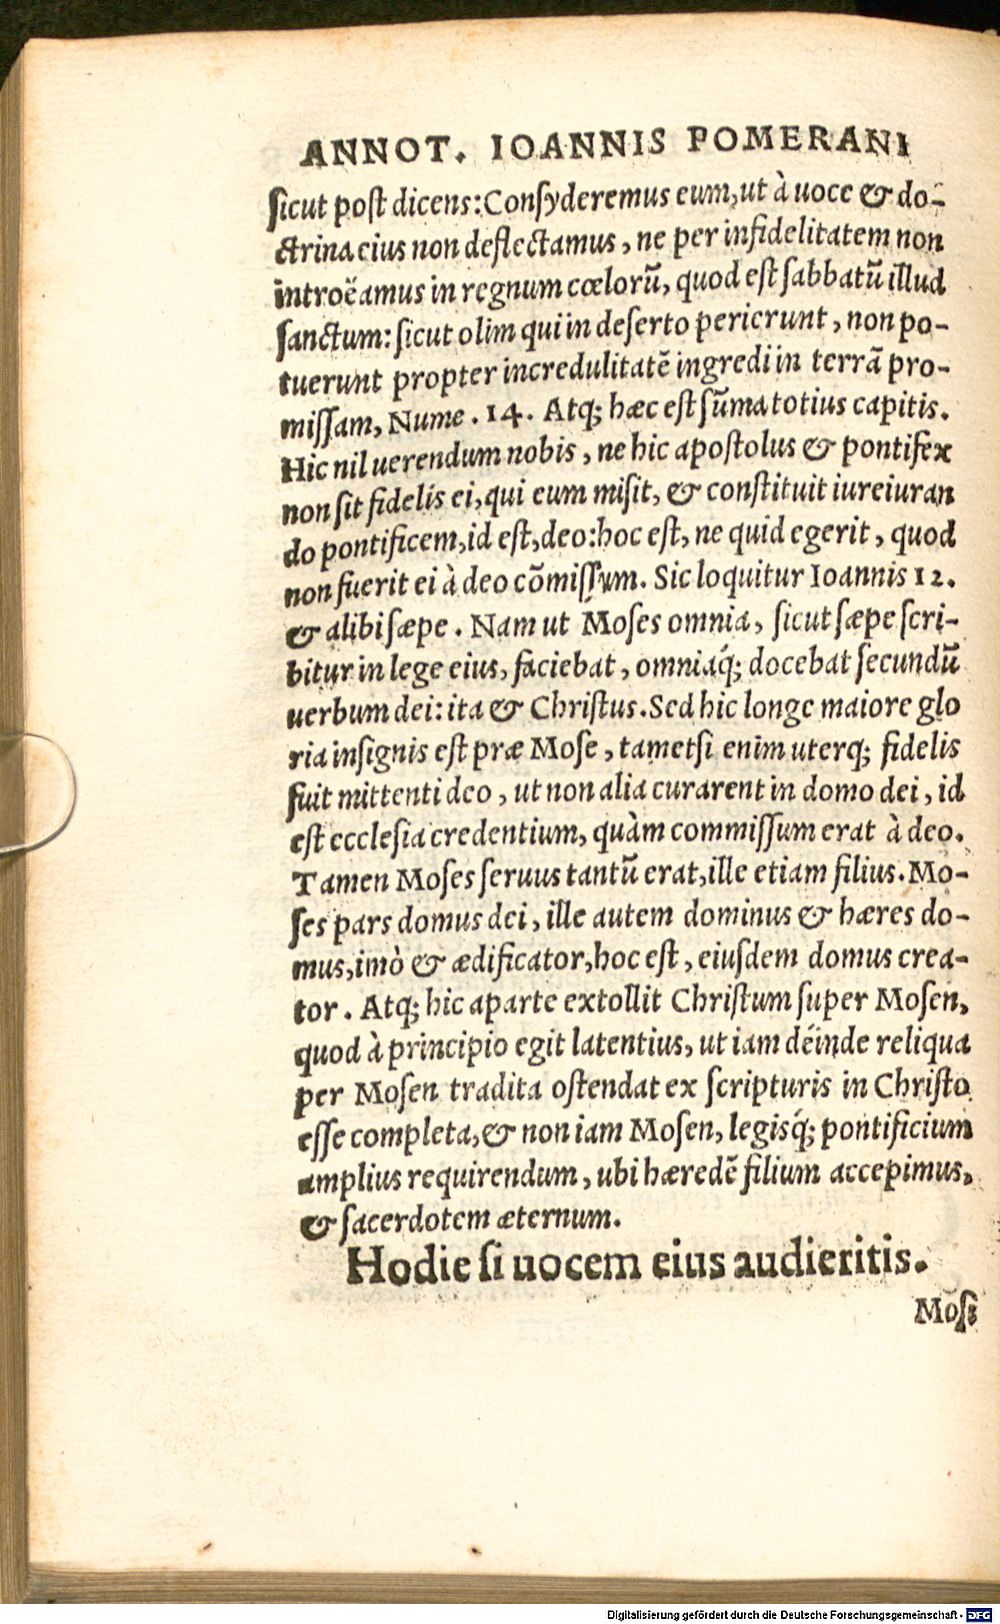 ANNOT. IOANNIS POMERANI
ſicut poſt dicens: Conſyderemus eum, ut à uoce & do-
ctrina eius non deflectamus, ne per infidelitatem non
introëamus in regnum cœlorũ, quod eſt ſabbatũ illud
ſanctum: ſicut olim qui in deſerto pericrunt, non po-
tuerunt propter incredulitatẽ ingredi in terrã pro-
miſſam, Nume. 14. Atq; hæc eſt ſũma totius capitis.
Hic nil uerendum nobis, ne hic apoſtolus & pontifex
non ſit fidelis ei, qui eum miſit, & conſtituit iureiuran
do pontificem, id eſt, deo: hoc eſt, ne quid egerit, quod
non fuerit ei à deo cõmiſſum. Sic loquitur Ioannis 12.
& alibi ſæpe. Nam ut Moſes omnia, ſicut ſæpe ſcri-
bitur in lege eius, faciebat, omniaq́; docebat ſecundũ
uerbum dei: ita & Chriſtus. Sed hic longe maiore glo
ria inſignis eſt præ Moſe, tametſi enim uterq; fidelis
fuit mittenti deo, ut non alia curarent in domo dei, id
eſt eccleſia credentium, quàm commiſſum erat à deo.
Tamen Moſes ſeruus tantũ erat, ille etiam filius. Mo-
ſes pars domus dei, ille autem dominus & hæres do-
mus, imò & ædificator, hoc eſt, eiuſdem domus crea-
tor. Atq; hic aparte extollit Chriſtum ſuper Moſen,
quod à principio egit latentius, ut iam déinde reliqua
per Moſen tradita oſtendat ex ſcripturis in Chriſto
eſſe completa, & non iam Moſen, legisq́; pontificium
amplius requirendum, ubi hæredẽ filium accepimus,
& ſacerdotem æternum.
Hodie ſi uocem eius audieritis.
Moſi
Digitalisierung gefördert durch die Deutsche Forschungsgemeinschaft - DFG